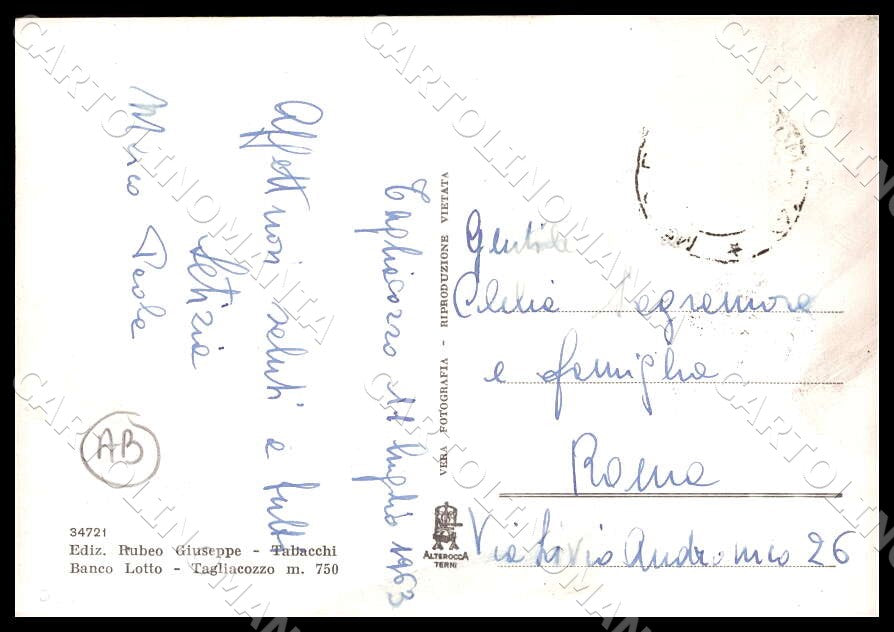 Tagliacozzo 11 luglio 1963
Affettuosi saluti a tutti
Letizia
Mirco Paola
AB
34721
Ediz. Rubeo Giuseppe - Tabacchi
Banco Lotto - Tagliacozzo m. 750
VERA FOTOGRAFIA - RIPRODUZIONE VIETATA
ALTEROCCA
TERNI
Gentile
Clelia
e famiglia
Roma
Via Livio Andronico 26
CARTOLINOMANIA